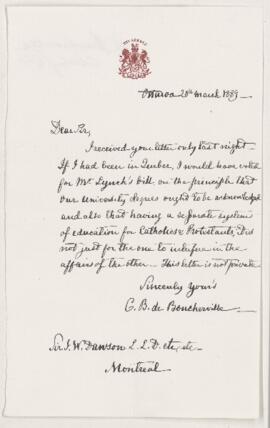 THE SENATE
Ottawa 20th March 1889.
Dear Sir,
I received your letter only last night.
If I had been in Quebec, I would have voted
for Mr Lynch's bill, on the principle that
our University degrees ought to be acknowledged
and also that having a separate system
of education for Catholics & Protestants, it is
not just for the one to interfere in the
affairs of the other. - This letter is not private
Sincerely Yours
C. B. de Boucherville
Sir J. W. Dawson L. L. D. etc, etc
Montreal